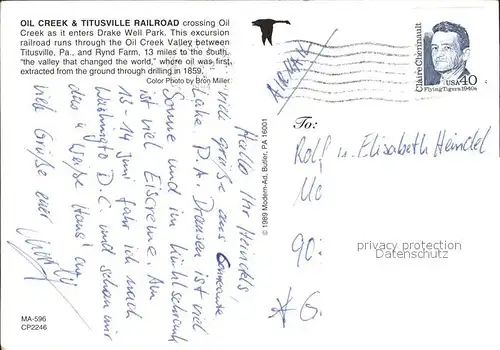 OIL CREEK & TITUSVILLE RAILROAD crossing Oil
Creek as it enters Drake Well Park. This excursion
railroad runs through the Oil Creek Valley between
Titusville, Pa., and Rynd Farm, 13 miles to the south,
"the valley that changed the world," where oil was first
extracted from the ground through drilling in 1859.
Color Photo by Bron Miller
Hallo Ihr Heindels!
viele grüße aus
Lake P.A. Draussen ist viel
Sonne und im Kühlschrank
ist viel Eiscreme. Am
13-14 Juni fahr ich nach
Washington D.C. und schau mir
das "Weiße Haus" an
viele Grüße euer
MA-596
CP2246
© 1989 Modern-Ad, Butler, PA 16001
AIRMAIL
Claire Chennault
USA 40
Flying Tigers 1940s
To:
Rolf u. Elisabeth Heindel
90:
G.
privacy protection
Datenschutz